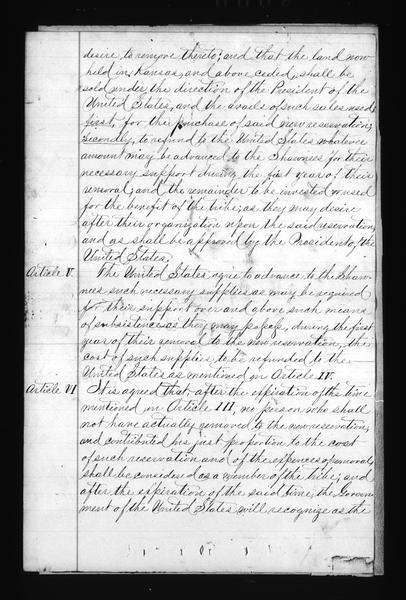 desire to remove thereto; and that the land now
held in Kansas, and above ceded, shall be
sold under the direction of the President of the
United States, and the avails of such sales used:
first, for the purchase of said new reservation;
secondly, to refund to the United States whatever
amount may be advanced to the Shawnees for their
necessary support during the first year of their
removal; and the remainder to be invested or used
for the benefit of the tribe, as they may desire
after their organization upon the said reservation,
and as shall be approved by the President of the
United States.
Article V. The United States agree to advance to the Shaw-
nees such necessary supplies as may be required
for their support over and above such means
of subsistence as they may possess, during the first
year of their removal to the new reservation, the
cost of such supplies to be refunded to the
United States as mentioned in Article IV.
Article VI It is agreed that, after the expiration of the time
mentioned in Article III, no person who shall
not have actually removed to the new reservation,
and contributed his just proportion to the cost
of such reservation and of the expences of removal,
shall be considered as a member of the tribe; and
after the expiration of the said time, the Govern-
ment of the United States will recognize as the